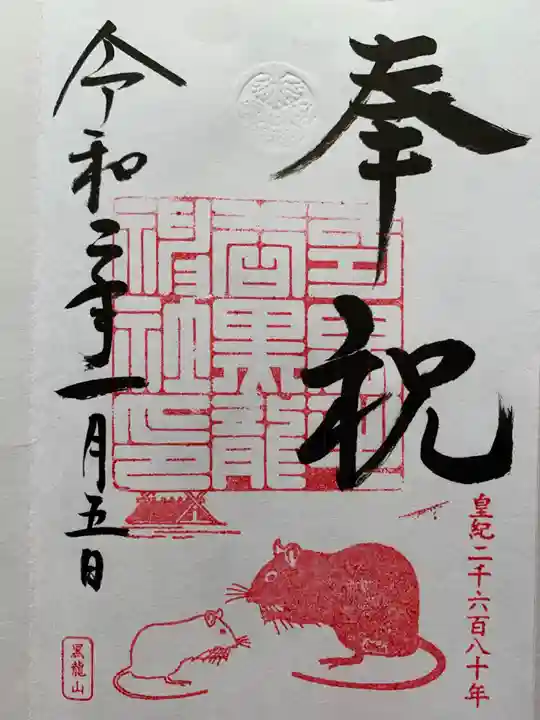 奉祝
黒龍
神社印
令和二年一月五日
皇紀二千六百八十年
黒龍山